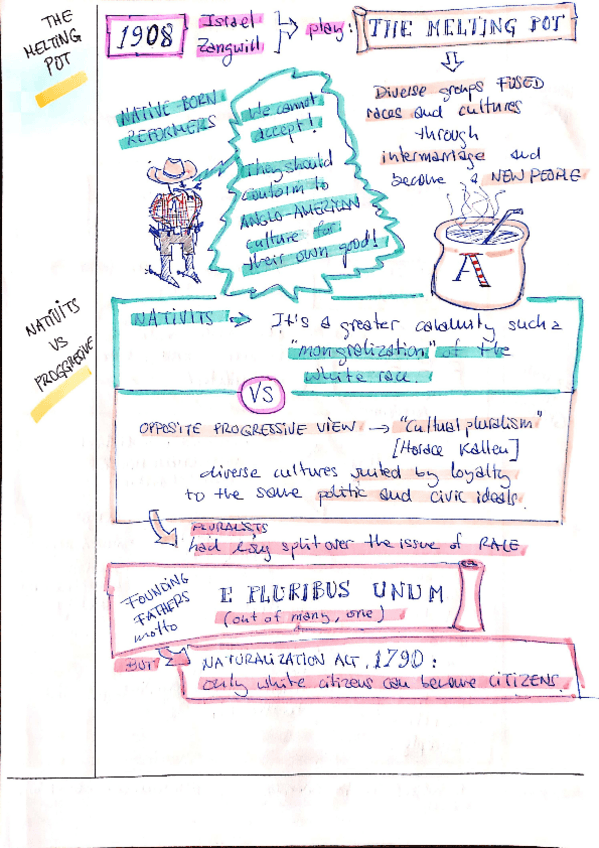 THE
MELTING
POT
1908
Israel
Zangwill
play:
THE MELTING POT
Diverse groups FUSED
races and cultures
through
intermarriage and
become a NEW PEOPLE
NATIVE-BORN
REFORMERS
We cannot
accept!
They should
conform to
ANGLO-AMERICAN
culture for
their own good!
A
NATIVITS
VS
PROGGRESIVE
NATIVITS → It's a greater calamity such a
"mongralization" of the
white race.
VS
OPPOSITE PROGRESSIVE VIEW → "Cultural pluralism"
[Horace Kallen]
diverse cultures united by loyalty
to the same politic and civic ideals.
PLURALISTS
had split over the issue of RACE
FOUNDING
FATHERS
motto
E PLURIBUS UNUM
(out of many, one)
BUT
NATURALIZATION ACT, 1790:
only white citizens can become CITIZENS.